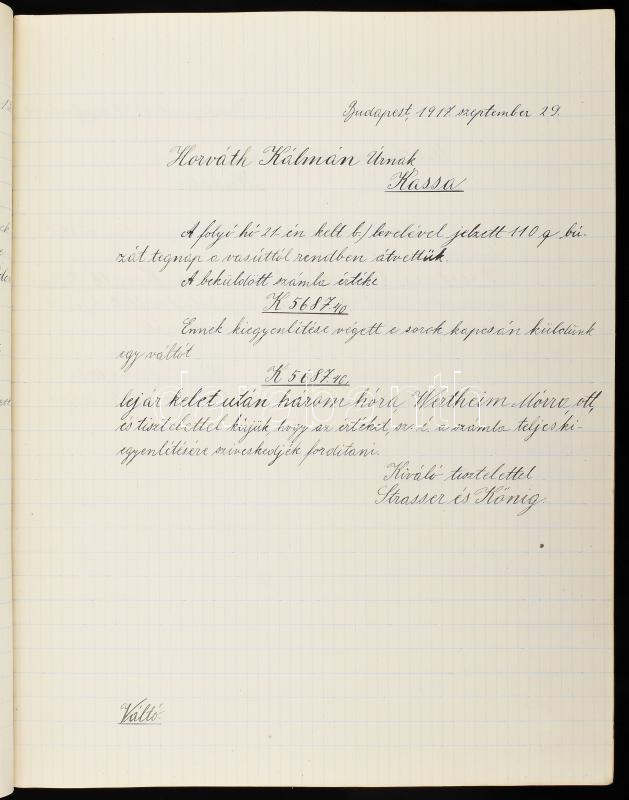 Budapest, 1917. szeptember 29.
Horváth Kálmán Úrnak
Kassa
A folyó hó 21-én kelt b.) levelével jelzett 110 q bú-
zát tegnap a vasúttól rendben átvettük.
A beküldött számla értéke
K 5687.40
Ennek kiegyenlítése végett e sorok kapcsán küldünk
egy váltót
K 5687.40.
lejár kelet után három hóra, Wertheim Mórra ott,
és tisztelettel kérjük, hogy az értékét, a számla teljes ki-
egyenlítésére szíveskedjék fordítani.
Kiváló tisztelettel
Strasser és König.
Váltó.